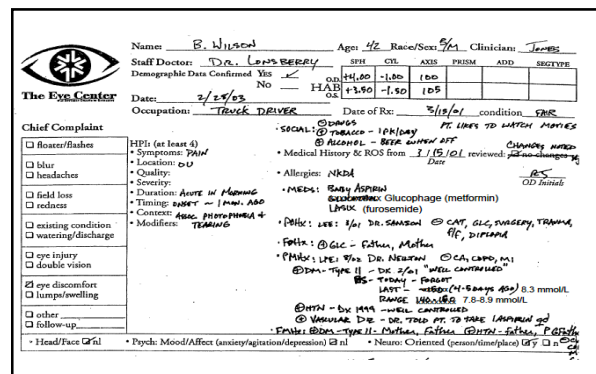 Name: B. WILSON Age: 42 Race/Sex: /M Clinician: JONES
Staff Doctor: DR. LONSBERRY
Demographic Data Confirmed Yes ✓
No
SPH CYL AXIS PRISM ADD SEGTYPE
HAB
O.D. +4.00 -1.00 100
O.S. +3.50 -1.50 105
The Eye Center
Date: 2/28/03
Occupation: TRUCK DRIVER Date of Rx: 3/15/01 condition FAIR
Chief Complaint
☐ floater/flashes
☐ blur
☐ headaches
☐ field loss
☐ redness
☐ existing condition
☐ watering/discharge
☐ eye injury
☐ double vision
☑ eye discomfort
☐ lumps/swelling
☐ other
☐ follow-up
HPI: (at least 4)
• Symptoms: PAIN
• Location: OU
• Quality:
• Severity:
• Duration: ACUTE IN MORNING
• Timing: ONSET ~ 1 MIN. AGO
• Context: ASSOC PHOTOPHOBIA +
• Modifiers: TEARING
• SOCIAL: ⊖ DRUGS PT. LIKES TO WATCH MOVIES
⊕ TOBACCO - 1PK/DAY
⊕ ALCOHOL - BEER WHEN OFF
CHANGES NOTED
• Medical History & ROS from 3/15/01 reviewed: no changes
Date
• Allergies: NKDA
RS
OD Initials
• MEDS: BABY ASPIRIN
Glucophage (metformin)
LASIX (furosemide)
• POHx: LEE: 3/01 DR. SAMSON ⊖ CAT, GLC, SURGERY, TRAUMA,
F/F, DIPLOPIA
• FOHx: ⊕ GLC - Father, Mother
• PMHx: LPE: 8/02 DR. NEWTON ⊖ CA, COPD, MI
⊕ DM-TYPE II - DX 2/01 "WELL CONTROLLED"
BS - TODAY - FORGOT
LAST - (4-5 DAYS AGO) 8.3 mmol/L
RANGE 7.8-8.9 mmol/L
⊕ HTN - DX 1999 - WELL CONTROLLED
⊕ VASCULAR DZ - DR. TOLD PT. TO TAKE 1 ASPIRIN qd
• FMHx: ⊕ DM-TYPE II - Mother, Father ⊕ HTN - father,
• Head/Face ☑ nl • Psych: Mood/Affect (anxiety/agitation/depression) ☑ nl • Neuro: Oriented (person/time/place) ☑ y ☐ n